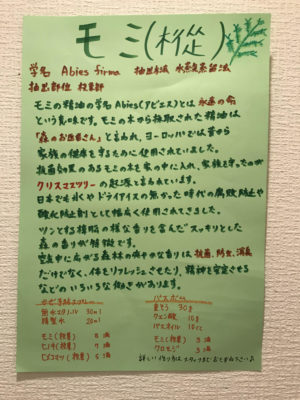 モミ(樅)
学名 Abies firma 抽出方法 水蒸気蒸留法
抽出部位 枝葉部
モミの精油の学名Abies(アビエス)とは永遠の命
という意味です。モミの木から採取された精油は
「森のお医者さん」と言われ、ヨーロッパでは昔から
家族の健康を守るために使用されていました。
抗菌効果のあるモミの木を家の中に入れ、家族を守ったのが
クリスマスツリーの起源と言われています。
日本でも氷やドライアイスの無かった時代の腐敗防止や
酸化防止剤として幅広く使用されてきました。
ツンとする樟脳の様な香りを含んだスッキリとした
森の香りが特徴です。
空気中に広がる森林の爽やかな香りは、抗菌、防虫、消臭
だけでなく、体をリフレッシュさせたり、精神を安定させる
などのいろいろな働きがあります。
無水エタノール 30ml
精製水 20ml
モミ(枝葉) 8滴
ヒノキ(枝葉) 7滴
ヒメコマツ(枝葉) 5滴
バスボム
重そう 30g
クエン酸 10g
バスオイル 10cc
モミ(枝葉) 5滴
クロモジ 3滴
詳しい作り方はスタッフまでおたずね下さい♪